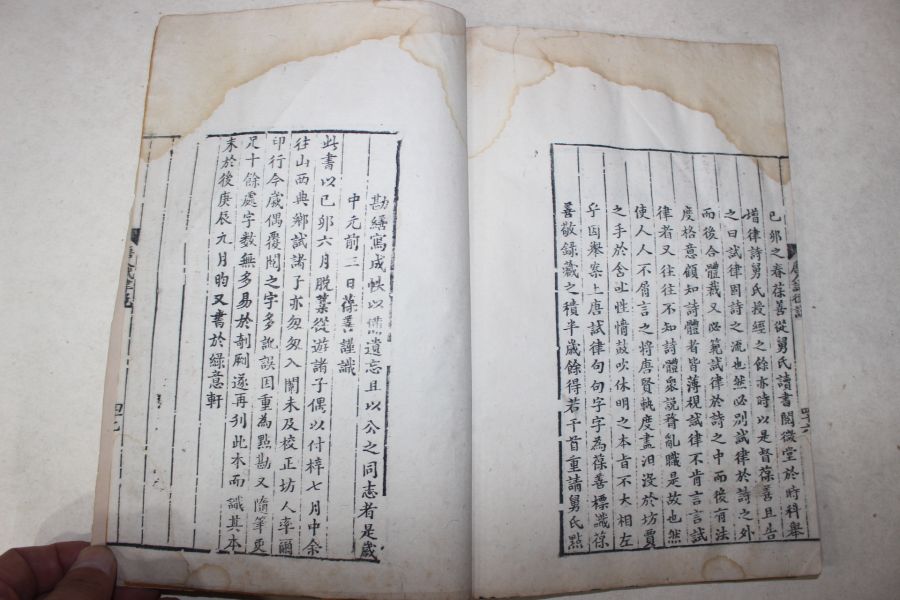 己卯之春葆善從舅氏讀書閱微堂於時科舉
增律詩舅氏授經之餘亦時以是督葆善且告
之曰試律固詩之流也然必別試律於詩之外
而後合體裁又必範試律於詩之中而後有法
度格意顧知詩體者皆薄視試律不肯言言試
律者又往往不知詩體眾說瞀亂職是故也然
使人人不屑言之將唐賢軌度盡汨没於坊賈
之手於舍吐性情鼓吹休明之本旨不大相左
乎因舉案上唐試律句句字字為葆善標識葆
善敬錄藏之積半歲餘得若干首重請舅氏點
勘繕寫成帙以備遺忘且以公之同志者是歲
中元前三日葆善謹識
此書以己卯六月脫藁從遊諸子偶以付梓七月中余
往山西典鄉試諸子亦匆匆入闈未及校正坊人率爾
印行今歲偶覆閱之字多訛誤因重為點勘又隨筆更
定十餘處字數無多易於剞劂遂再刊此本而識其本
末於後庚辰九月昀又書於綠意軒
四十六